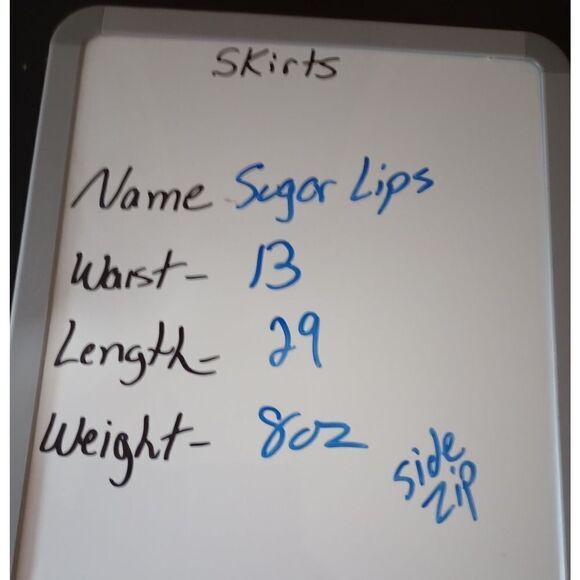 Skirts
Name Sugar Lips
Waist- 13
Length- 29
Weight- 8oz
side
zip